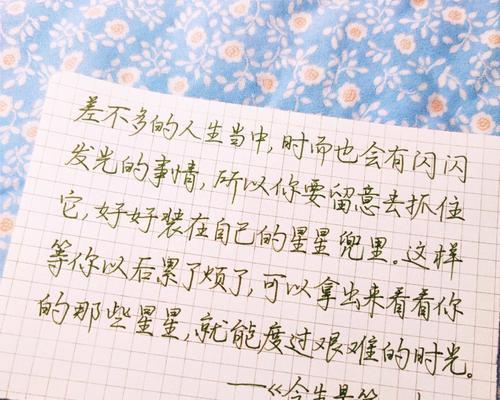 差不多的人生当中,时而也会有闪闪
发光的事情,所以你要留意去抓住
它,好好装在自己的星星兜里。这样
等你以后累了烦了,可以拿出来看看你
的那些星星,就能度过艰难的时光。
——《